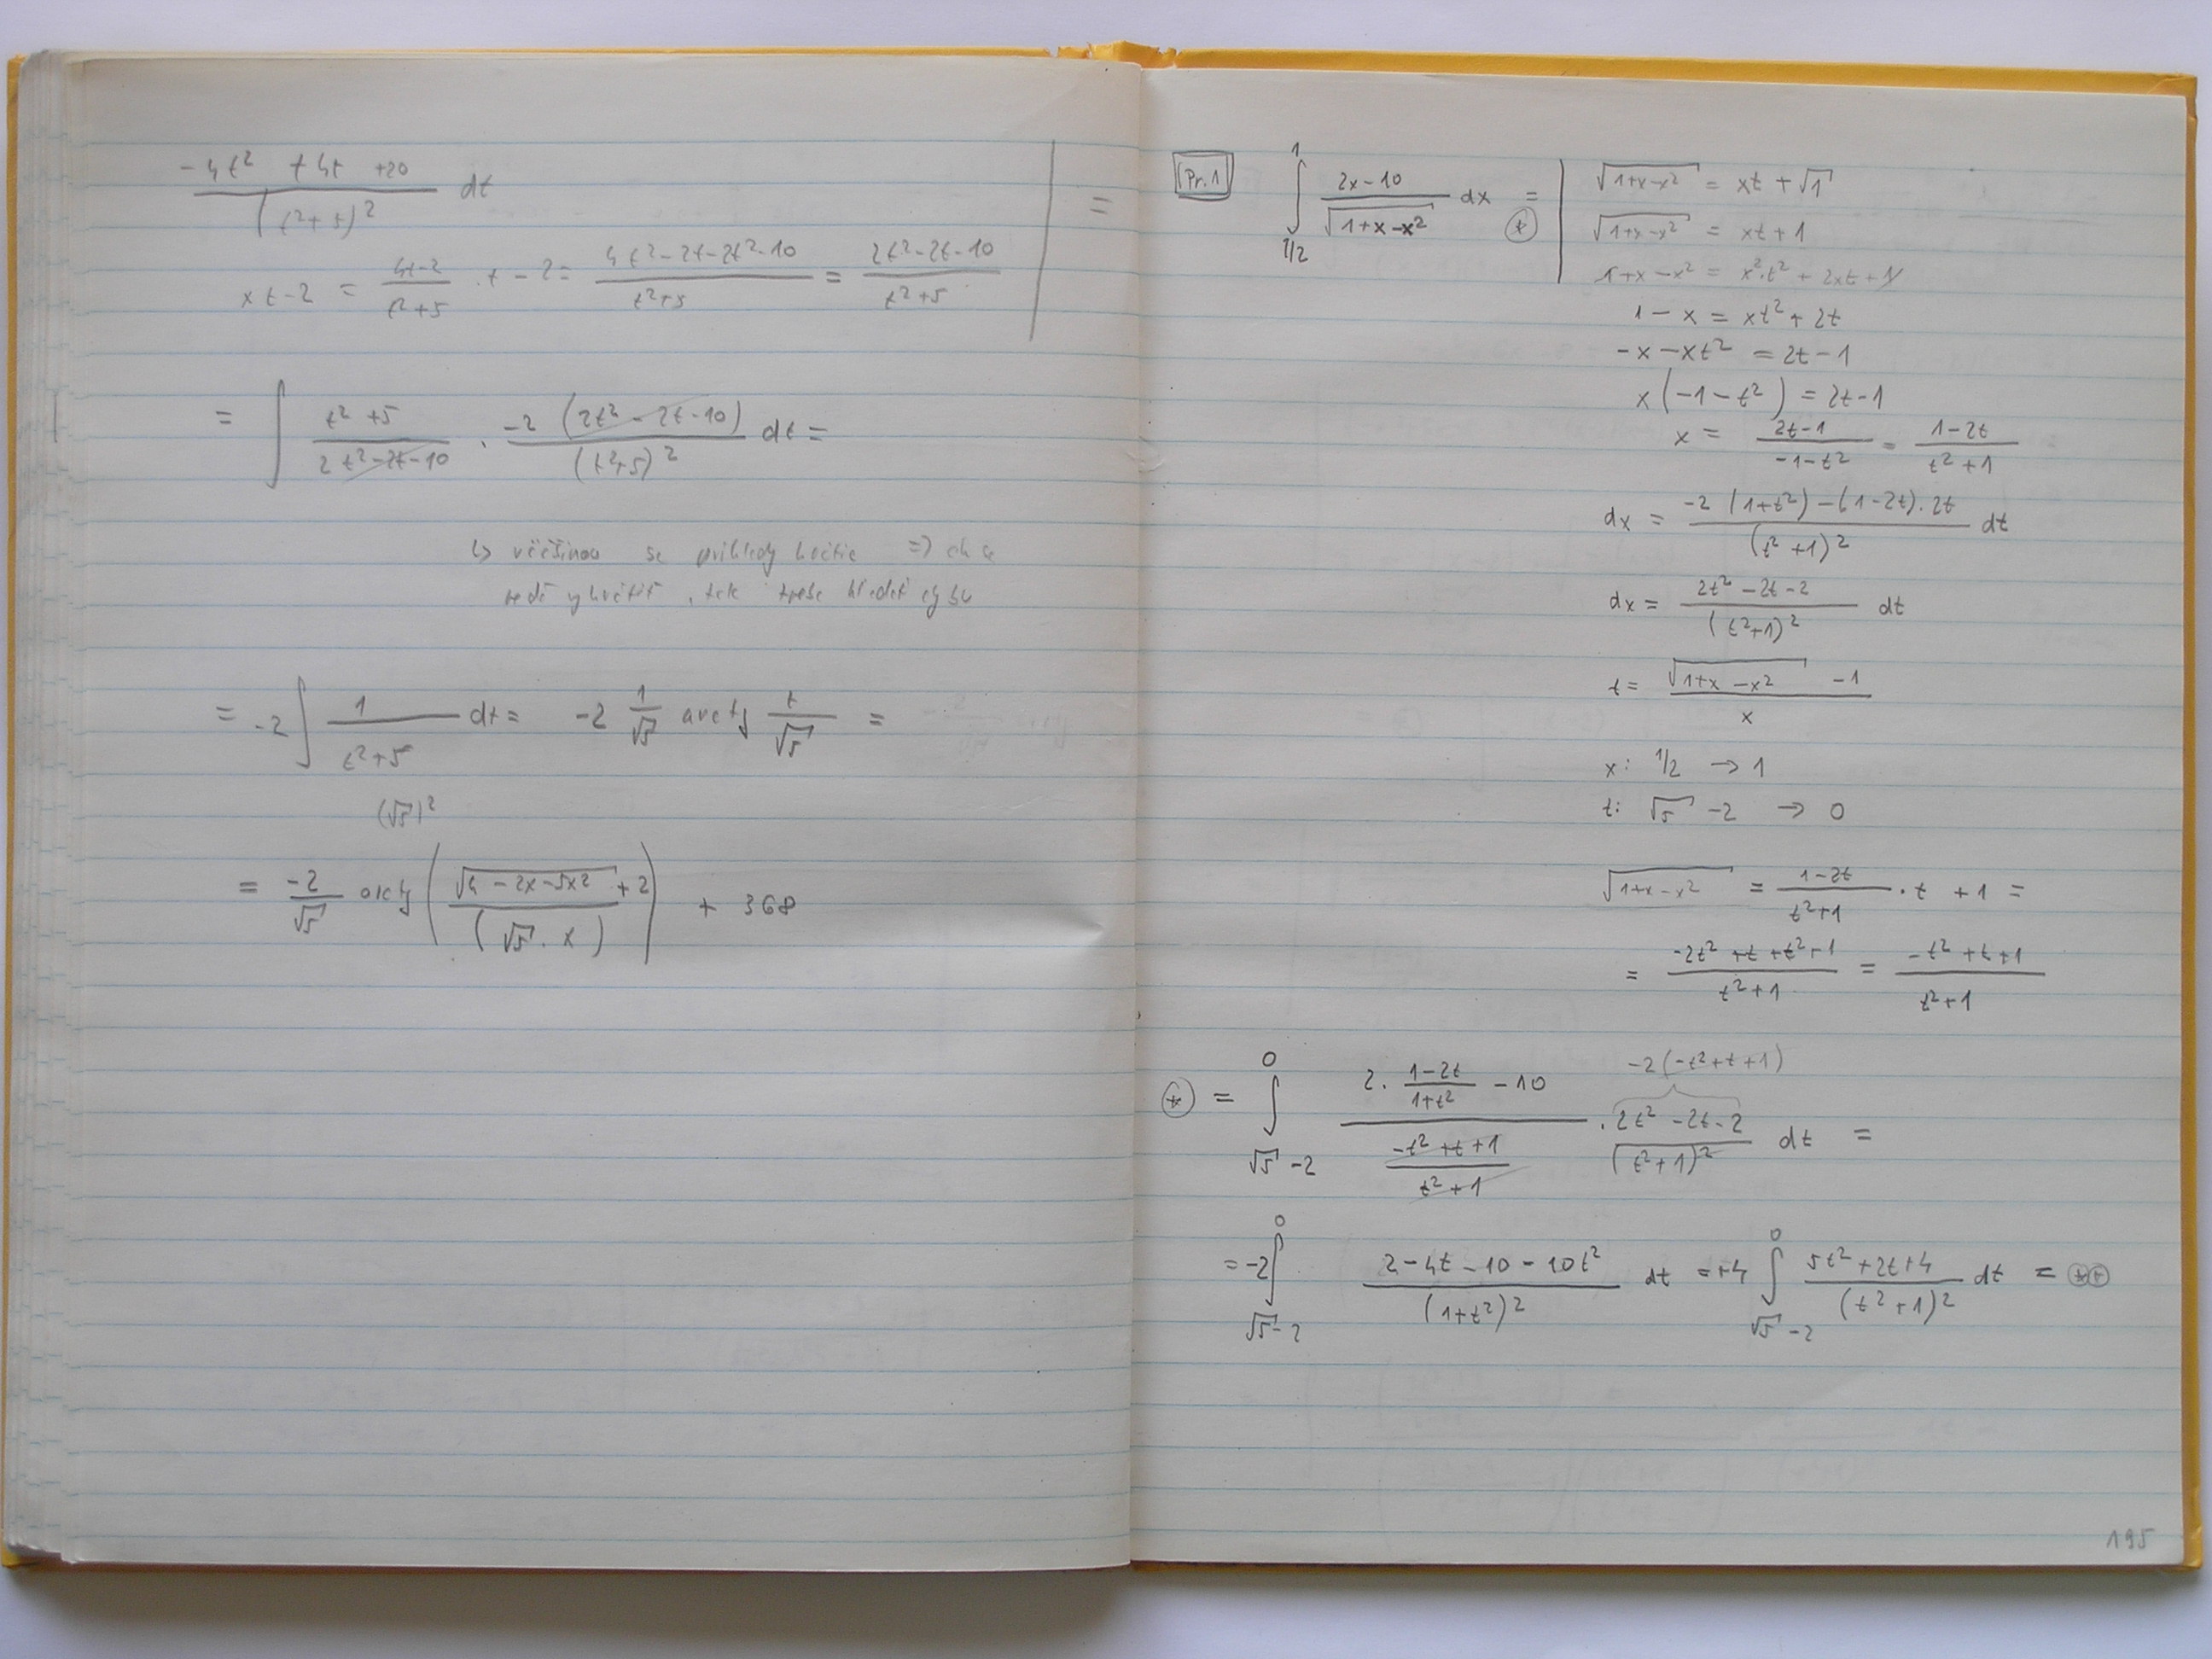 -4t² + 4t + 20 / (t²+5)² dt
xt-2 = 4t-2 / t²+5 · t - 2 = 4t²-2t-2t²-10 / t²+5 = 2t²-2t-10 / t²+5 | =
= ∫ t²+5 / 2t²-2t-10 · -2(2t²-2t-10) / (t²+5)² dt =
↳ většinou se příklady krátíe =>
, tak třeba hledat chybu
= -2 ∫ 1 / t²+5 dt = -2 1/√5 arctg t/√5 =
(√5)²
= -2/√5 arctg ( √4-2x-5x² + 2 / (√5 · x) ) + 368
Pr. 1 ∫ 1/2 1 2x-10 / √1+x-x² dx = (*) | √1+x-x² = xt + √1
√1+x-x² = xt + 1
1+x-x² = x²·t² + 2xt + 1
1 - x = xt² + 2t
-x - xt² = 2t - 1
x(-1-t²) = 2t-1
x = 2t-1 / -1-t² = 1-2t / t²+1
dx = -2(1+t²)-(1-2t)·2t / (t²+1)² dt
dx = 2t²-2t-2 / (t²+1)² dt
t = √1+x-x² -1 / x
x: 1/2 → 1
t: √5 -2 → 0
√1+x-x² = 1-2t / t²+1 · t + 1 =
= -2t²+t+t²+1 / t²+1 = -t²+t+1 / t²+1
-2(-t²+t+1)
(*) = ∫ √5-2 0 2· 1-2t / 1+t² - 10 / -t²+t+1 / t²+1 · 2t²-2t-2 / (t²+1)² dt =
= -2 ∫ √5-2 0 2-4t-10-10t² / (1+t²)² dt = +4 ∫ √5-2 0 5t²+2t+4 / (t²+1)² dt = (*)(*)
195